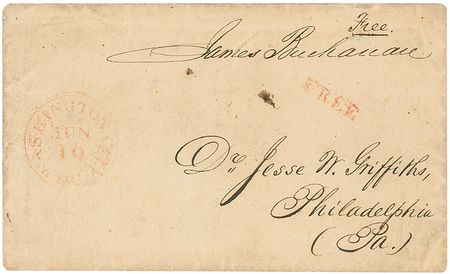 Free.
James Buchanan
FREE
WASHINGTON CITY
JUN
10
Dr. Jesse W. Griffiths,
Philadelphia
(Pa.)